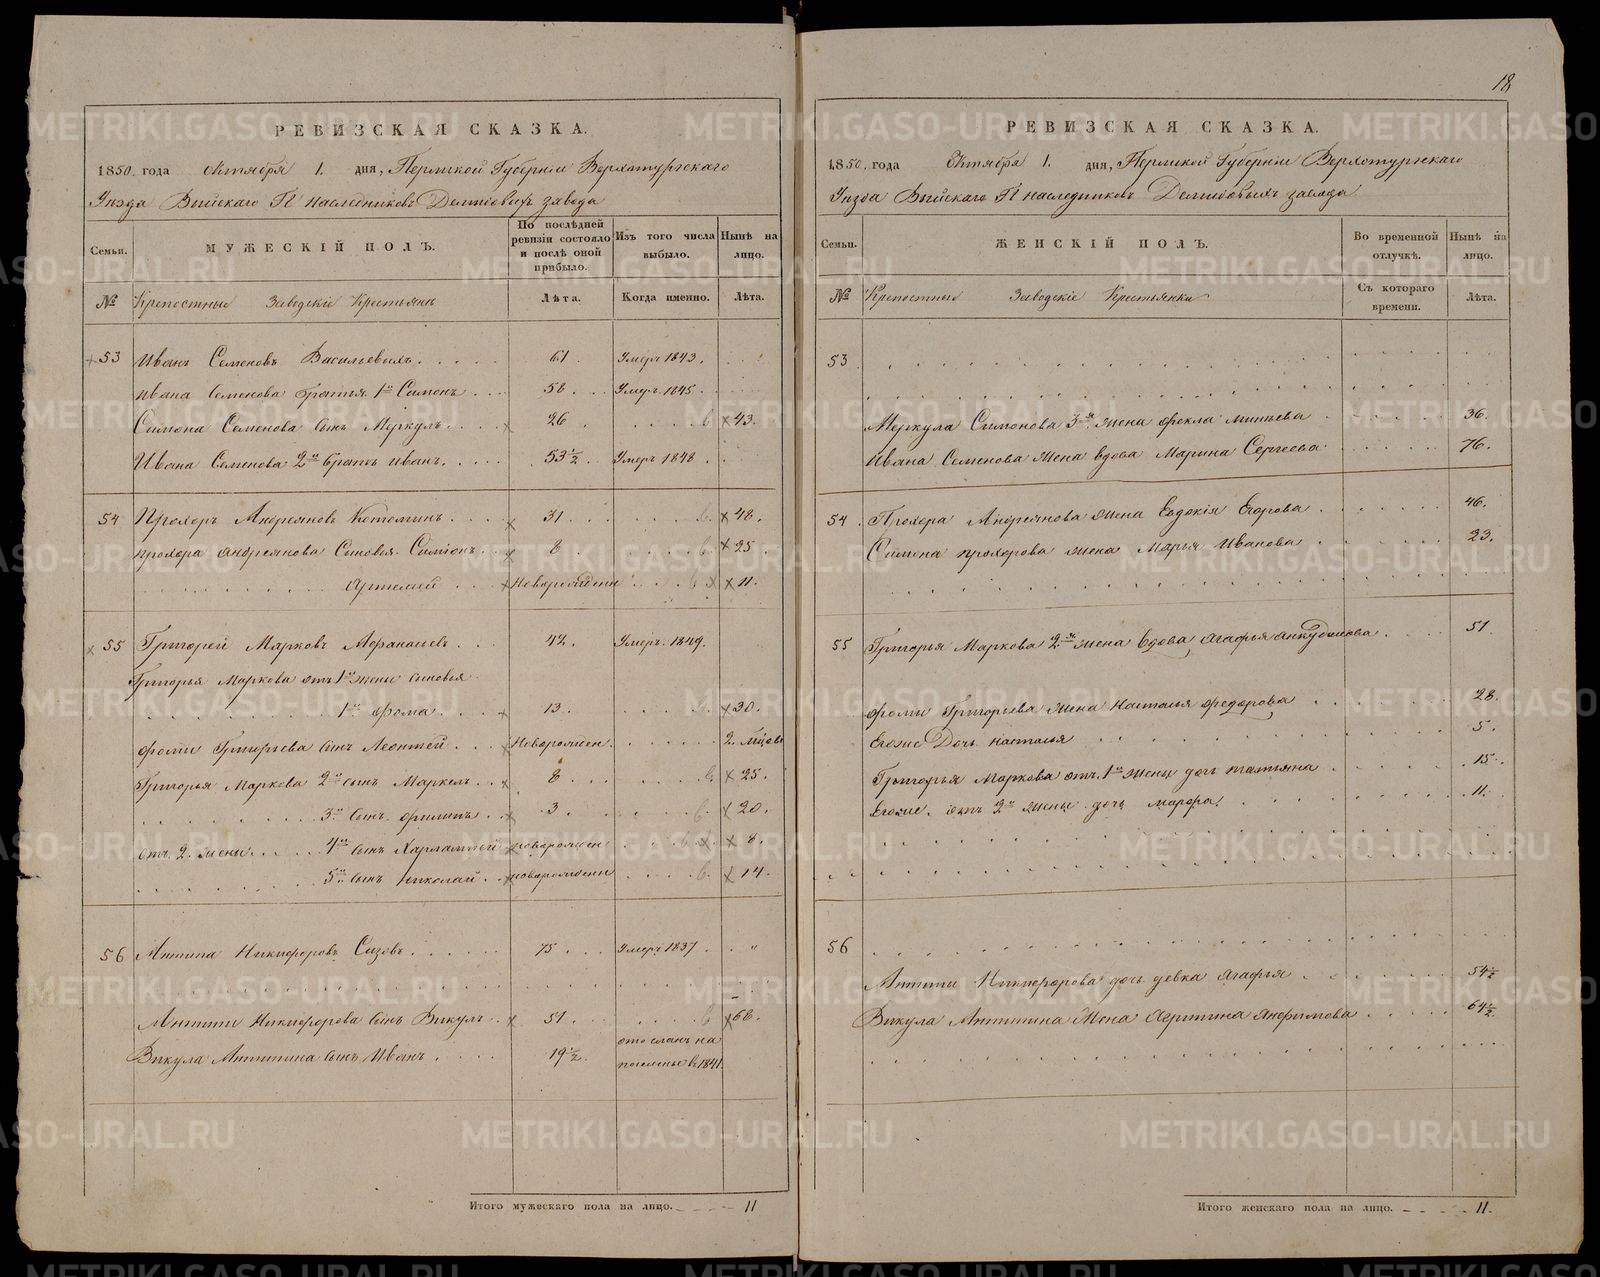 18
РЕВИЗСКАЯ СКАЗКА.
1850. года Октября 1. дня, Пермской Губернiи Верхотурскаго
Уѣзда Выйскаго Гг наслѣдниковъ Демидовыхъ завода
Семьи.
МУЖЕСКІЙ ПОЛЪ.
По послѣдней ревизіи состояло и послѣ оной прибыло.
Изъ того числа выбыло.
Нынѣ на лицо.
№ Крепостные Заводскіе Крестьяне
Лѣта. Когда именно. Лѣта.
53 Иванъ Семеновъ Васильевыхъ 61. Умеръ 1843.
Ивана Семенова братья 1й Симонъ 58 Умеръ 1845
Симона Семенова сынъ Меркулъ 26 43.
Ивана Семенова 2й братъ Иванъ 53½ Умеръ 1848
54 Прохоръ Андреяновъ Котоминъ 31 48.
Прохора Андреянова Сыновья Симіонъ 8 25
Артемій Новорожден 11.
55 Григорій Марковъ Афанасьевъ 42. Умеръ 1849.
Григорья Маркова отъ 1й жены сыновья
1й Фома 13. 30.
Фомы Григорьева сынъ Леонтей Новорожден. 2. мѣсяц
Григорья Маркова 2й сынъ Маркелъ 8 25.
3й сынъ Филипъ 3 20.
отъ 2. жены 4й сынъ Харлампей новорожден 8.
5й сынъ Николай новорожден 14.
56 Антипа Никифоровъ Сизовъ 75 Умеръ 1837 "
Антипы Никифорова сынъ Викулъ 51 68.
Викула Антипина сынъ Иванъ 19½ отосланъ на поселенье в 1841.
Итого мужескаго пола на лицо. 11
РЕВИЗСКАЯ СКАЗКА.
1850. года Октября 1. дня, Пермской Губерніи Верхотурскаго
Уѣзда Выйскаго Гг наследниковъ Демидовыхъ завода
Семьи.
ЖЕНСКІЙ ПОЛЪ.
Во временной отлучкѣ.
Нынѣ на лицо.
№ Крепостные Заводскіе Крестьянки
Съ котораго времени.
Лѣта.
53
Меркула Симонова 3я жена Фекла Минѣева 36.
Ивана Семенова жена вдова Марина Сергеева 76.
54. Прохора Андреянова жена Евдокія Егорова 46.
Симона Прохорова жена Марья Иванова 23.
55 Григорья Маркова 2я жена вдова Агафья Анкудинова 51
Фомы Григорьева жена Настасья Федорова 28
Егоже Дочь Настасья 5.
Григорья Маркова отъ 1й жены дочь Татьяна 15.
Егоже. отъ 2й жены дочь Марфа 11.
56
Антипы Никифорова дочь девка Агафья 54½
Викула Антипина Жена Агрипина Анфимова 64½
Итого женскаго пола на лицо. 11.
METRIKI.GASO-URAL.RU